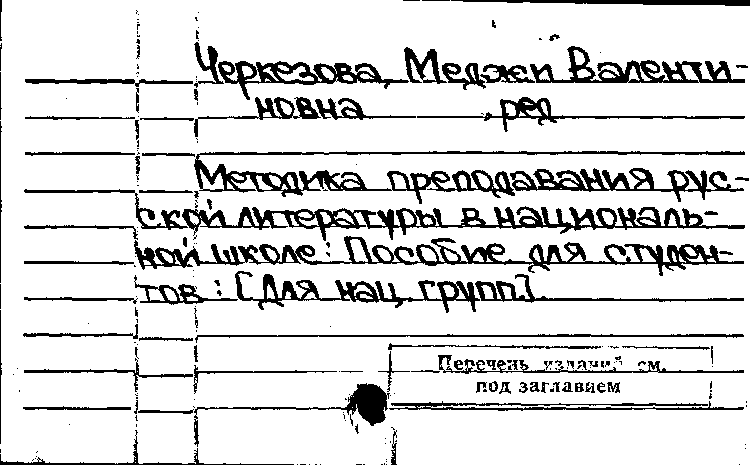 Черкезова, Меджи Валенти-
новна , ред
Методика преподавания рус-
ской литературы в националь-
ной школе: Пособие для студен-
тов : [Для нац. групп].
Перечень изданий см.
под заглавием